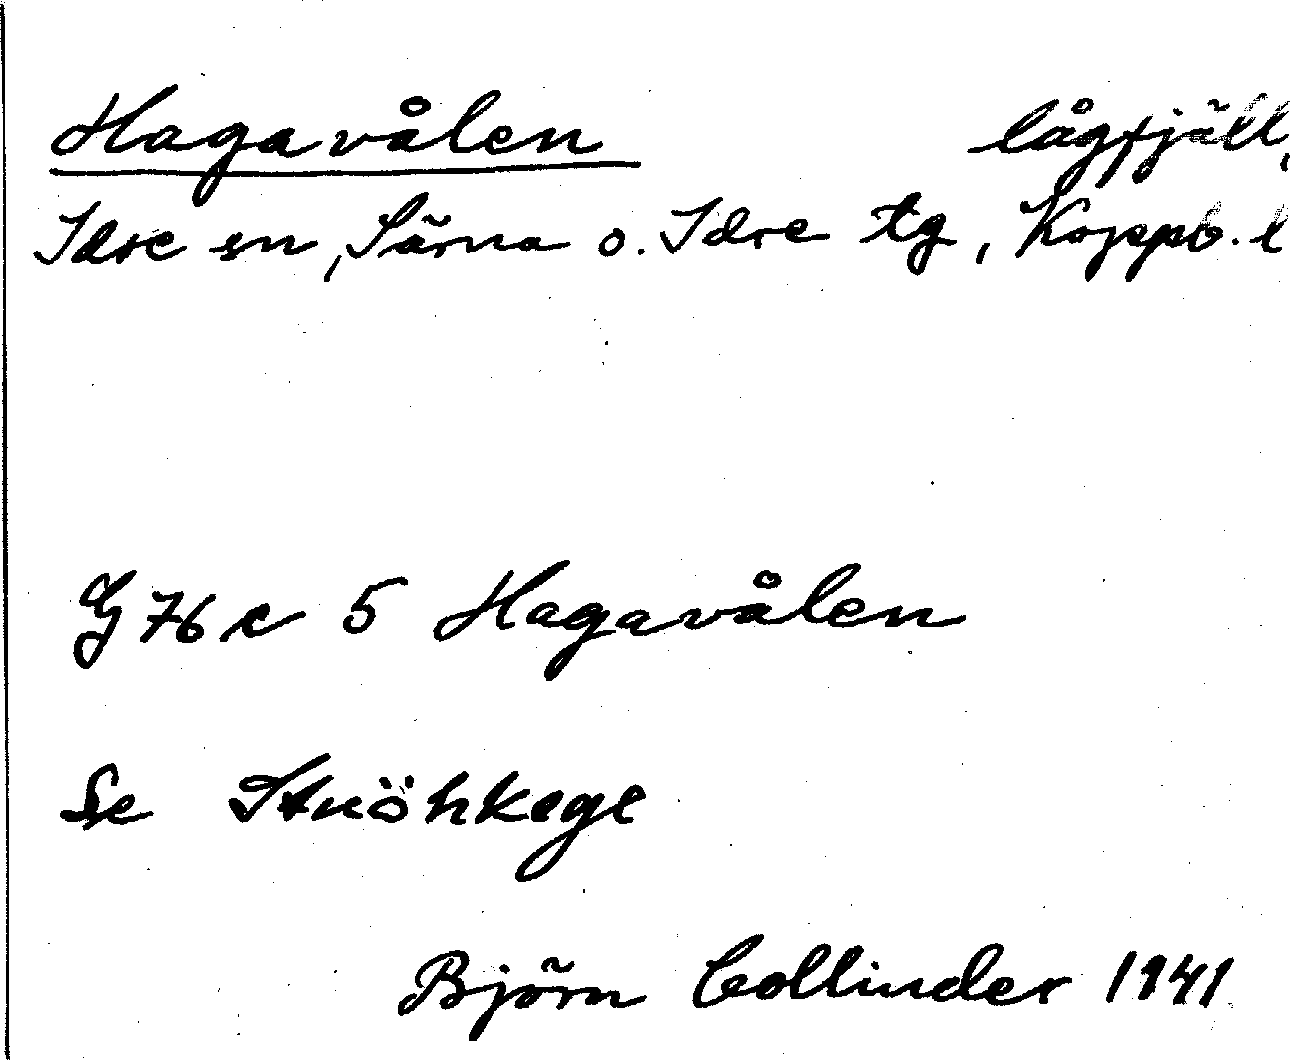 Hagavålen lågfjäll,
Idre sn, Särna o. Idre tg, Koppb. l
G 76 c 5 Hagavålen
Se
Björn Collinder 1941